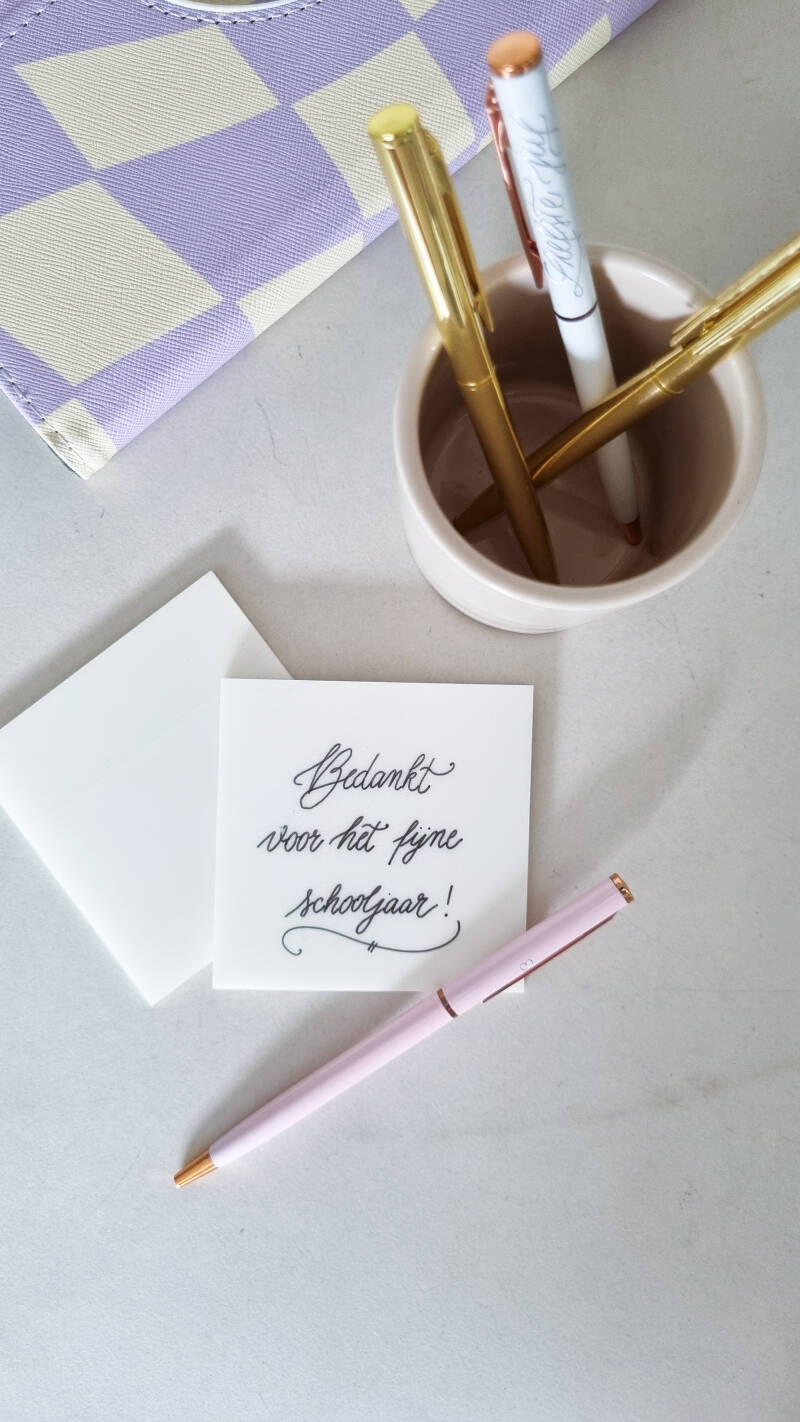 Liefste juf
Bedankt
voor het fijne
schooljaar!